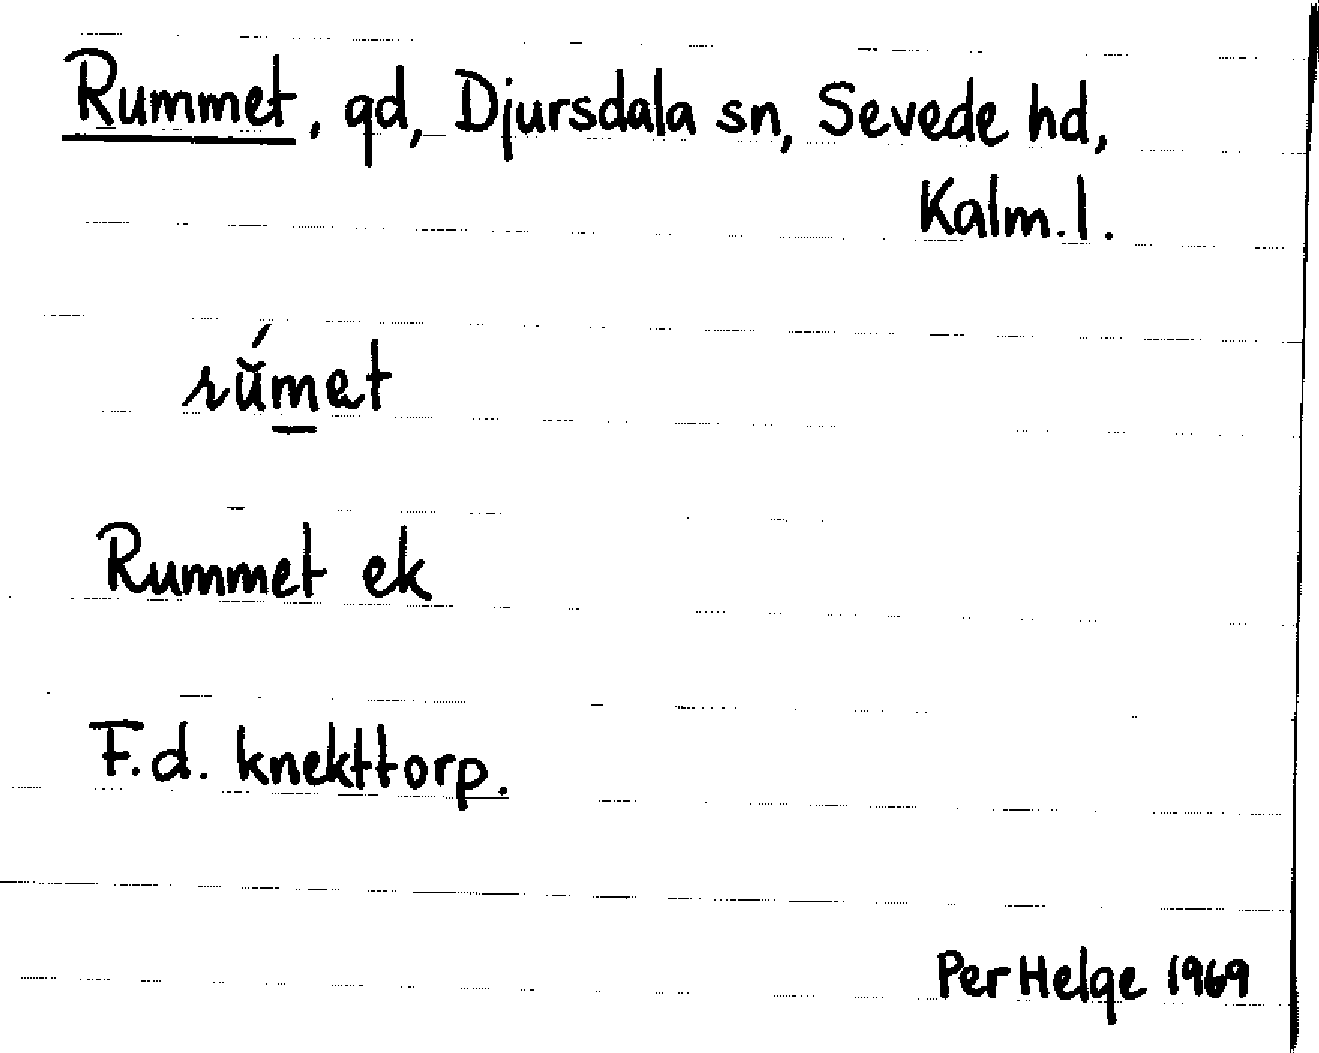 Rummet, gd, Djursdala sn, Sevede hd,
Kalm. l.
rŭ́m̲et
Rummet ek
F.d. knekttorp.
Per Helge 1969